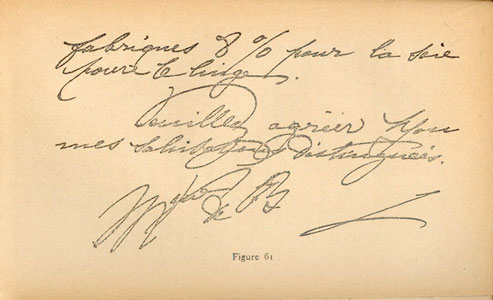 fabriques 8 % pour la soie
pour le linge.
Veuillez agréer Mon
mes Salutations Distinguées.
Figure 61